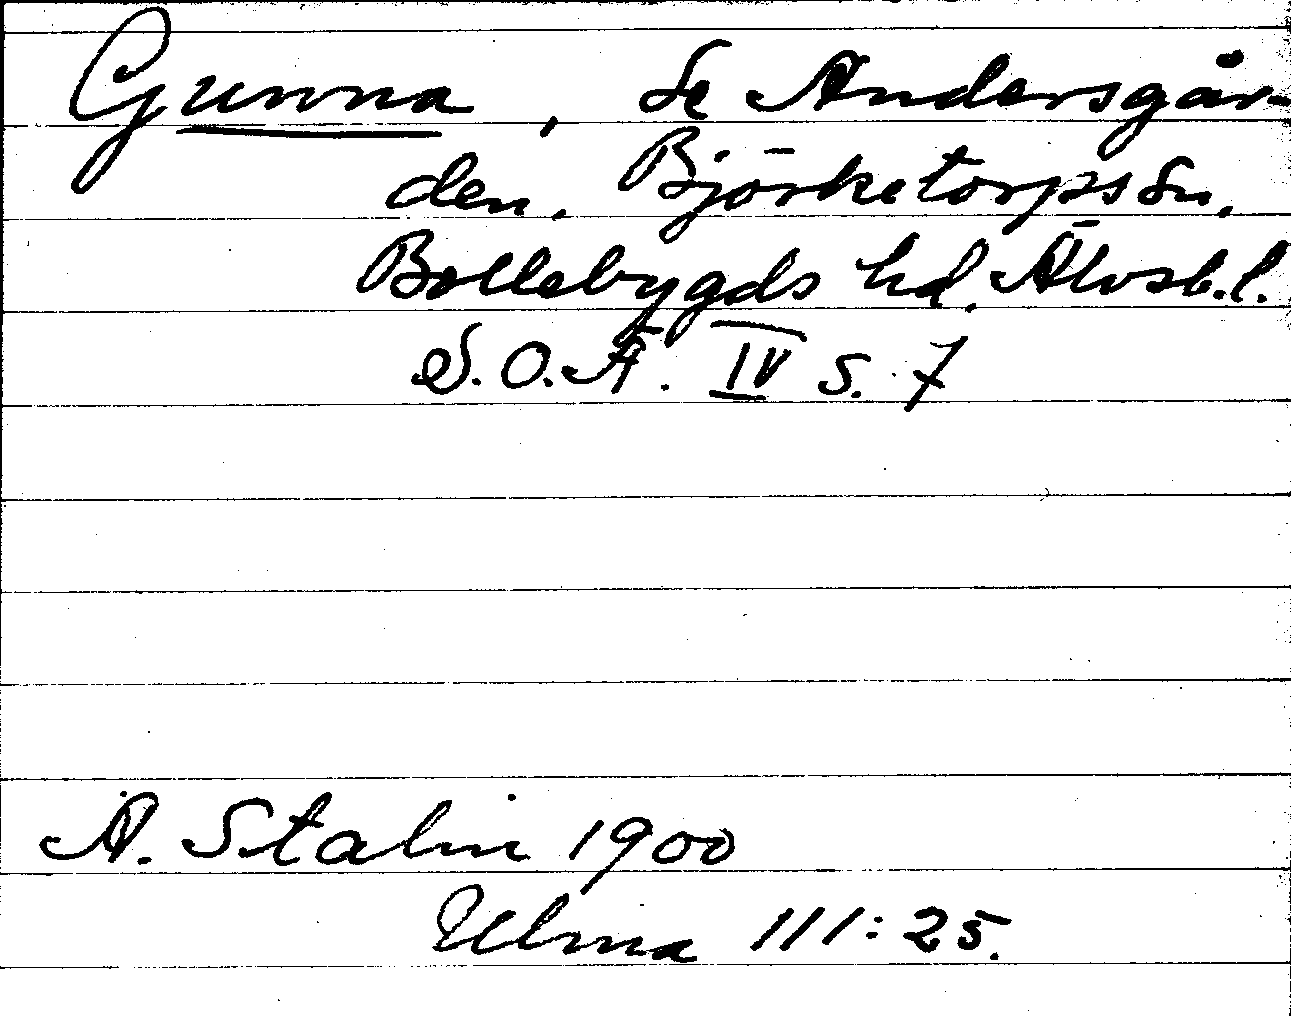 Gunna, Se Andersgår-
den, Björketorps sn,
Bollebygds hd, Älvsb.l.
S.O.Ä. IV s. 7
A. Stalin 1900
Ulma 111:25.